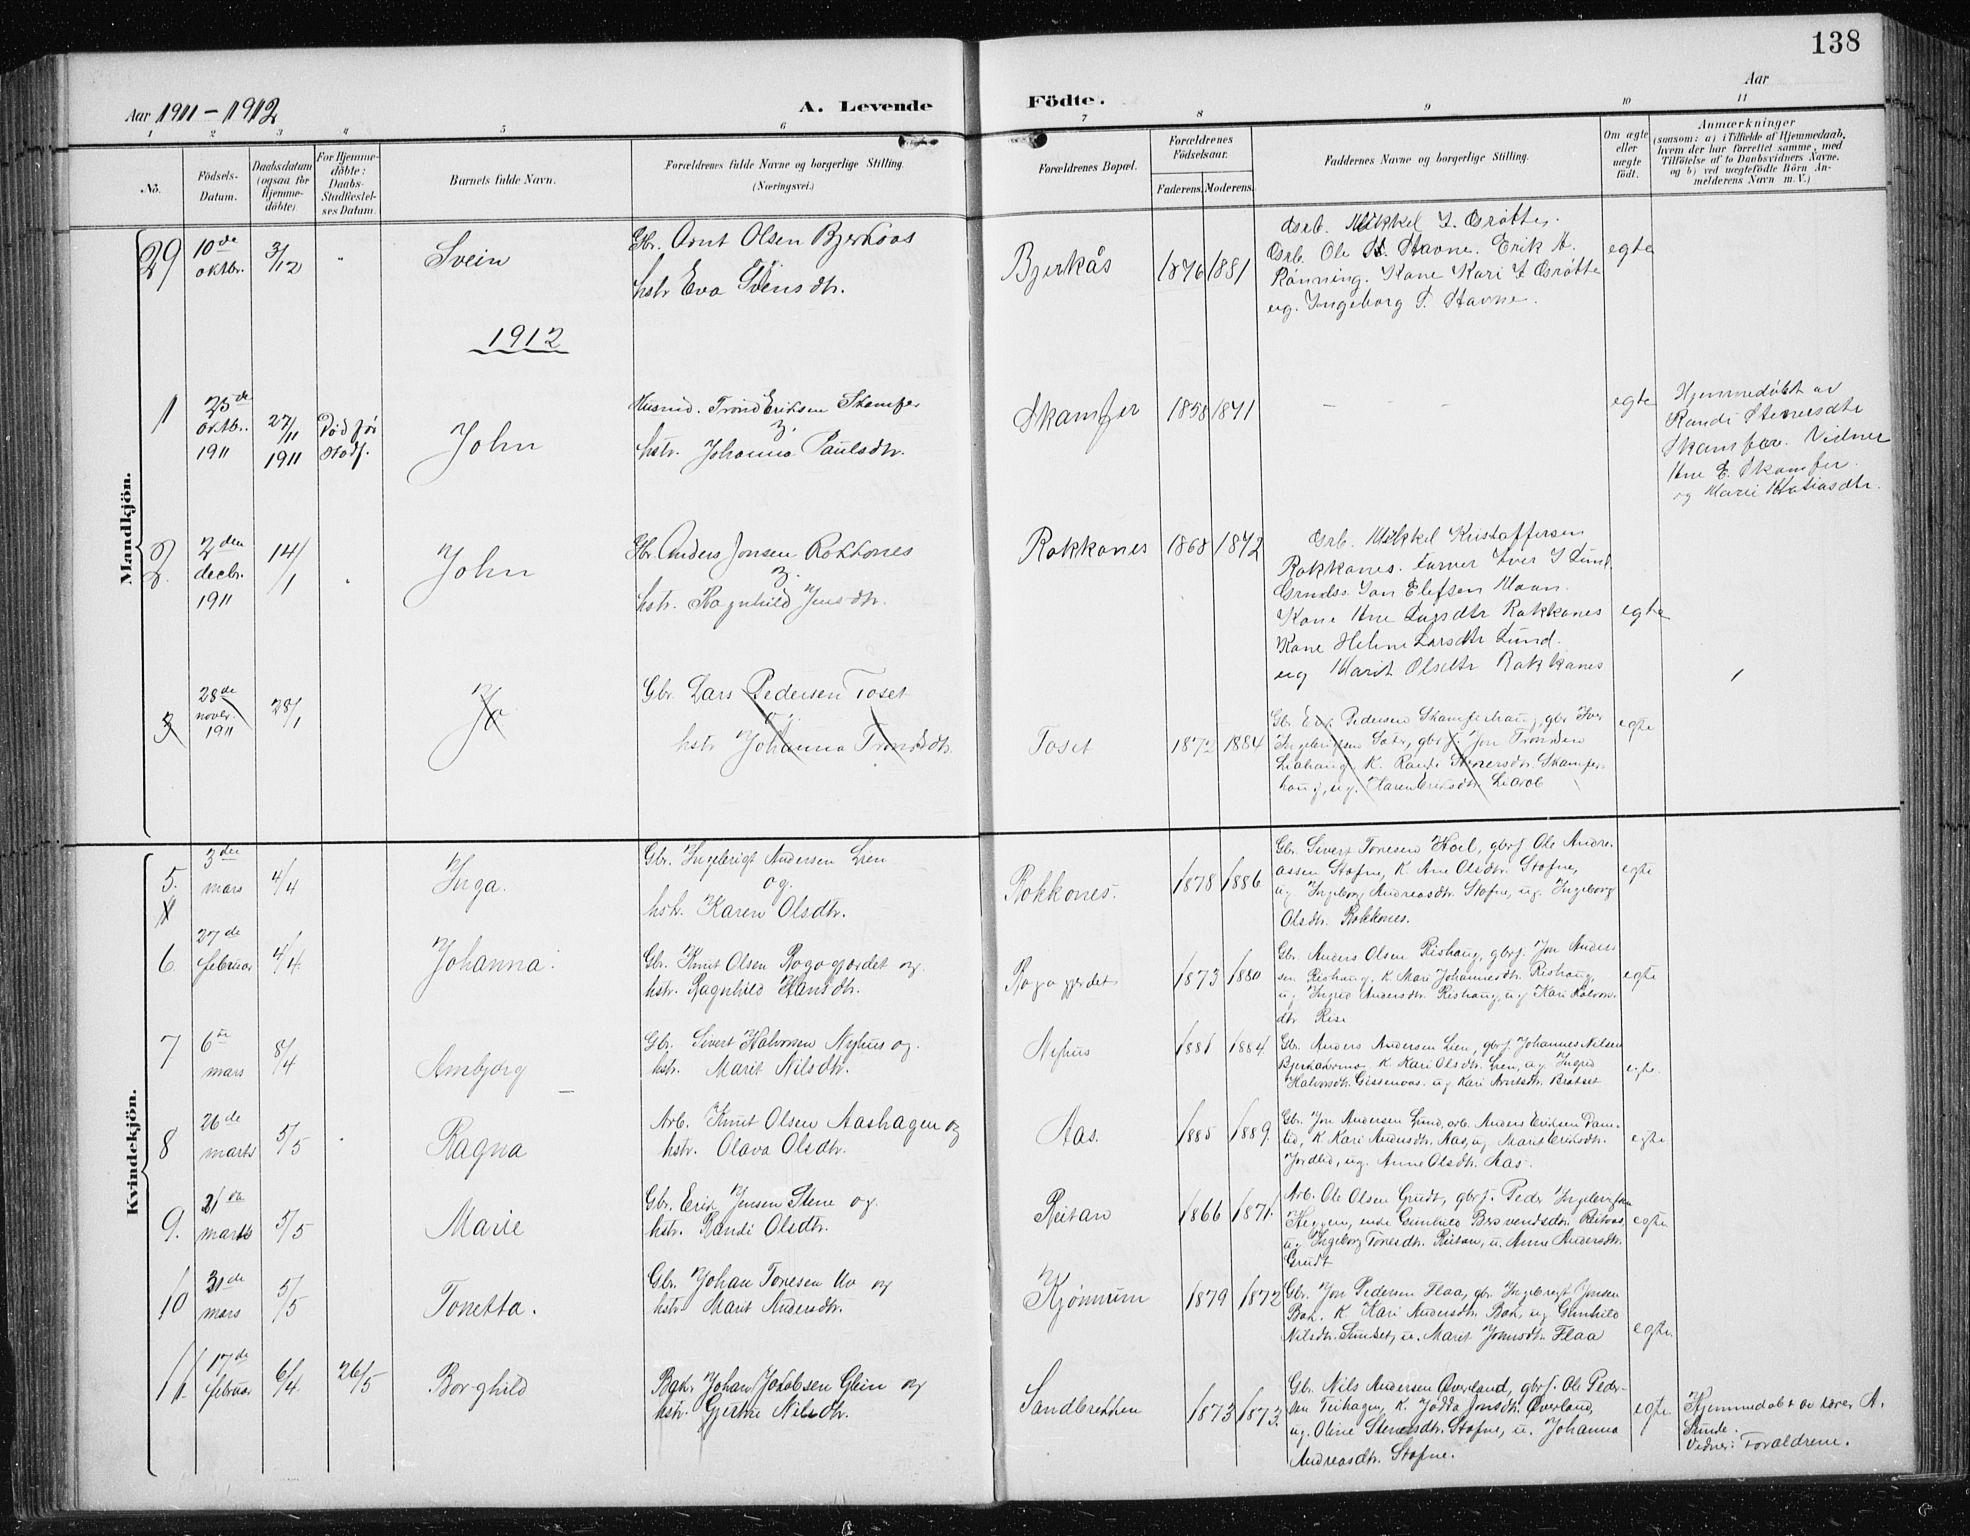 138
Aar 1911-1912
A. Levende
Födte.
Aar
1 2 3 4 5 6 7 8 9 10 11
Nô.
Födsels-
Datum.
Daabsdatum
(ogsaa for
Hjemme-
döbte).
For Hjemme-
döbte:
Daabs-
Stadfæstel-
ses Datum.
Barnets fulde Navn.
Forældrenes fulde Navne og borgerlige Stilling.
(Næringsvei.)
Forældrenes Bopæl.
Forældrenes
Födselsaar.
Faderens. Moderens.
Faddernes Navne og borgerlige Stilling.
Om ægte
eller
uægte
födt.
Anmærkninger
(saasom: a) i Tilfælde af Hjemmedaab,
hvem der har forrettet samme, med
Tilföielse af to Daabsvidners Navne,
og b) ved uægtefödte Börn An-
melderens Navn m. V.)
Mandkjön.
29
10de
oktbr.
3/12
"
Svein
Gbr. Arnt Olsen Bjerkaas
hstr Eva Svensdtr.
Bjerkås
1876 1881
Ole Stavne. Erik H.
Rønning. Kone Kari
ug. Ingeborg Stavne.
egte
1912
1
25de
oktbr.
1911
27/11
1911
Død før
stadf.
John
Husmd. Trond Eriksen Skamfer
hstr. Johanna Paulsdtr.
Skamfer
1858 1871
- - -
egte
Hjemmedøbt av
Randi Stenersdtr
Vidner
E. Skamfer.
og Marie
2.
2den
decbr.
1911
14/1
John
Gbr. Anders Jonsen Rokkones
hstr. Ragnhild Jensdtr.
Rokkones
1868 1872
Mikkel Kristoffersen
Rokkones. Iver Lund
Jon Elefsen Moan.
Kone Rokkones
Kone Helene Larsdtr Lund.
ug Marit Olsdtr Rokkones
egte
3
28de
novbr.
1911
28/1
Jo
Gbr. Lars Pedersen Toset
og
hstr Johanna Trondsdtr.
Toset
1872 1884
Gbr. Erik Pedersen Skamferhaug, gbr Iver
Ingebrigtsen Sæter, gbrf. Jon Trondsen
Liahaug, K. Randi Stenersdtr. Skamfer-
haug, ug. Karen Eriksdtr.
egte
Kvindekjön.
5.
3die
mars
4/4
Inga.
Gbr. Ingebrigt Andersen Lien
og
hstr. Karen Olsdtr.
Rokkones.
1878 1886
Gbr. Sivert Tonesen Hoel, gbrf Ole Andre-
assen Stofne, K. Ane Olsdtr. Stofne,
ug Ingeborg Andreasdtr. Stofne, ug. Ingeborg
Olsdtr. Rokkones.
egte
6
27de
februar
4/4
Johanna.
Gbr. Knut Olsen Rogogjerdet og
hstr. Ragnhild Hansdtr.
Rogogjerdet
1873 1880
Gbr. Anders Olsen Rishaug, gbrf. Jon Anders
sen Rishaug, K. Mari Johannesdtr. Rishaug,
ug Ingrid Andersdtr. Rishaug, ug Kari
dtr Rise
egte
7
6te
mars
8/4
Ambjørg
Gbr. Sivert Halvorsen Nyhus og.
hstr. Marit Nilsdtr.
Nyhus
1881 1884
Gbr. Anders Andersen Lien, gbrf. Johannes Nilsen
K. Kari Olsdtr. Lien, ug Ingrid
Halvorsdtr. Gissenaas. ug Kari Arntsdtr. Bratset
egte.
8
26de
marts
5/5
Ragna
Arb. Knut Olsen Aashagen og
hstr. Olava Olsdtr.
Aas.
1885 1889.
Gbr. Jon Andersen Lund, arb. Anders Eriksen
K Kari Andersdtr. Aas, ug Marit Eriksdtr.
Jordlid, ug. Anne Olsdtr. Aas.
egte
9.
marts
5/5
Marie
Gbr. Erik Jensen Stene og.
hstr. Randi Olsdtr.
Reitan
1866 1871.
Arb. Ole Olsen Grindt, gbrf. Peder Ingebrigtsen
Heggen, enke Gunhild
ug Ingeborg Tonesdtr. Reitan, u. Anne Andersdtr.
Grindt
egte
10
31de
mars
5/5
Tonetta.
Gbr. Johan Tonesen Uv og
hstr Marit Andersdtr.
Kjønnum
1879 1872
Gbr. Jon Pedersen Flaa, gbr. Ingebrigt Jonsen
Bak. K. Kari Andersdtr. Bak, ug Gunhild
Nilsdtr. Sundset, u. Maret Flaa
egte.
11.
17de
februar
6/4
26/5
Borghild
Johan Jakobsen Glein og
hstr. Gjertrue Nilsdtr.
Sandbrekken
1873 1873.
Gbr. Nils Andersen Øverland, gbrf. Ole Peder-
sen Teihagen, K. Jonsdtr. Øverland,
ug. Oline Stenersdtr. Stofne, u. Johanna
Andreasdtr. Stofne.
egte
Hjemmedøbt av lærer A.
Sunde.
Vidner: Forældrene.